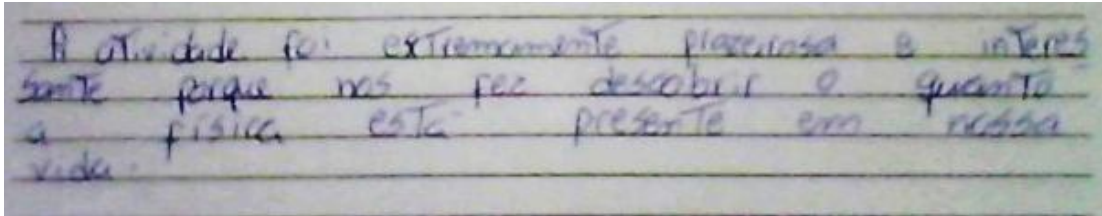 A atividade foi extremamente prazerosa e interes
sante porque nos fez descobrir o quanto
a física está presente em nossa
vida.